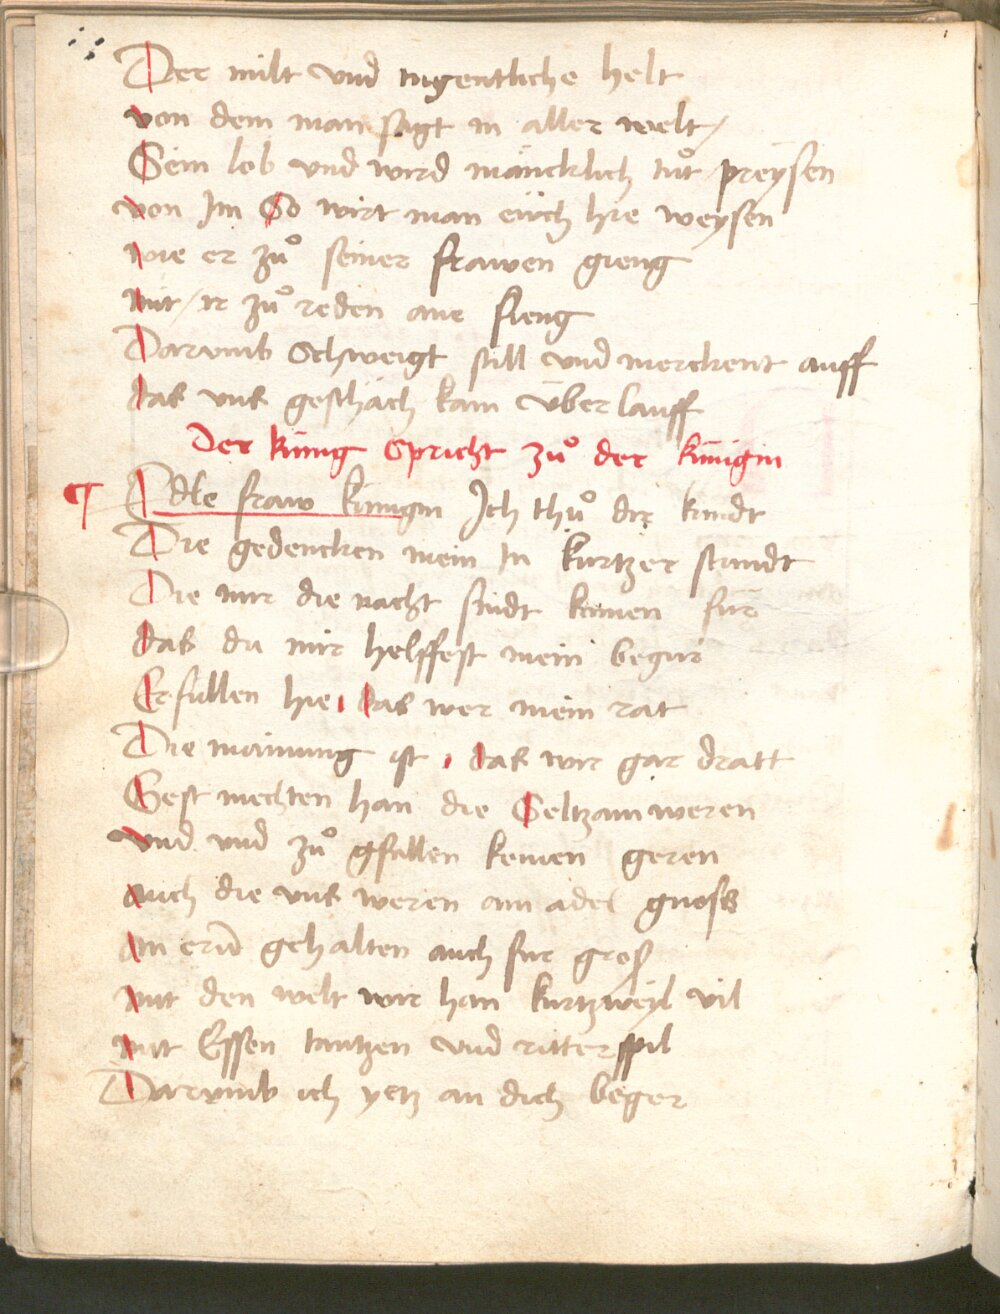 Der milt vnd tugentliche helt
von dem man sagt in aller welt /
Sein lob vnd wird mäncklich tuͦt preÿsen
von Im So wirt man eüch hie weÿsen
wie er zuͦ seiner frawen gieng
mit ir zuͦ reden ane fieng
Darvmb Schweigt still vnd merckent auff
das vns geschäch kain überlauff
Der künig Spricht zuͦ der künigin
Edle fraw künigin Ich thuͦ dir kundt
Die gedencken mein In kurtzer stundt
Die mir die nacht sindt kumen für
das du mir helffest mein begür
Erfüllen hie, das wer mein rat
Die mainung ist, das wir gar dratt
Gest mechten han die Seltzam weren
vnd vnd zuͦ gfallen kemen geren
auch die vns weren am adel gnoss
An ern gehalten auch für gros
mit den welt wir han kurtzweÿl vil
mit Essen tantzen vnd ritterspil
Darvmb ich yetz an dich beger